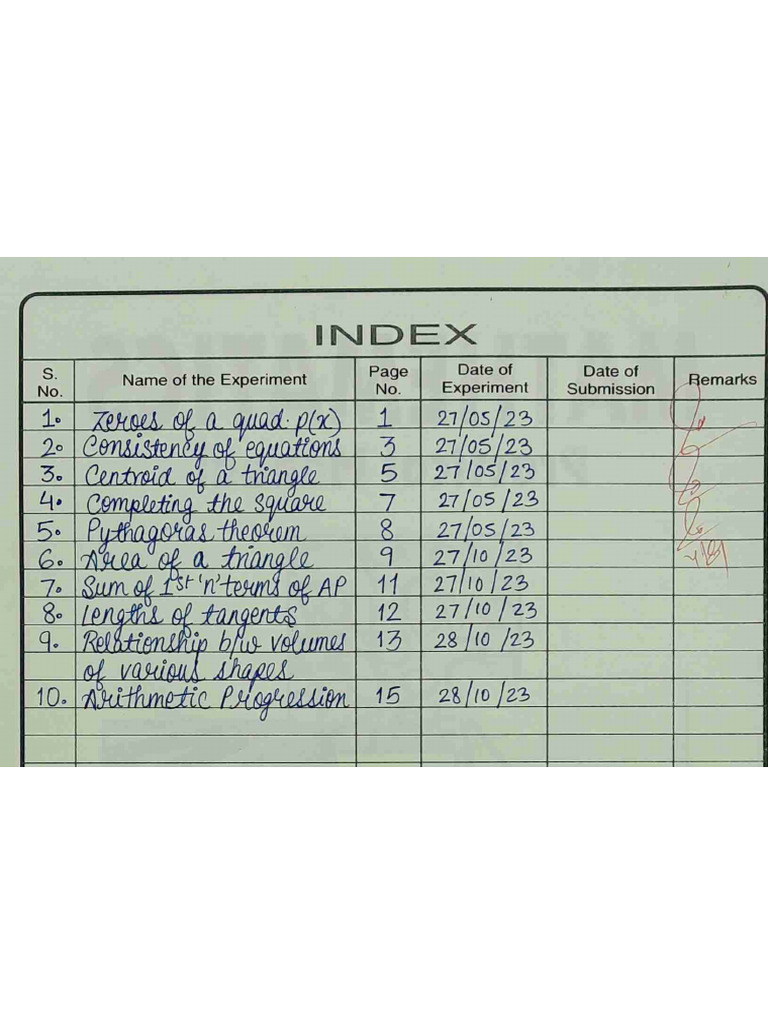 INDEX
S. No. Name of the Experiment Page No. Date of Experiment Date of Submission Remarks
1. Zeroes of a quad. p(x) 1 27/05/23
2. Consistency of equations 3 27/05/23
3. Centroid of a triangle 5 27/05/23
4. Completing the square 7 27/05/23
5. Pythagoras theorem 8 27/05/23
6. Area of a triangle 9 27/10/23
7. Sum of 1st 'n' terms of AP 11 27/10/23
8. Lengths of tangents 12 27/10/23
9. Relationship b/w volumes 13 28/10/23
of various shapes
10. Arithmetic Progression 15 28/10/23